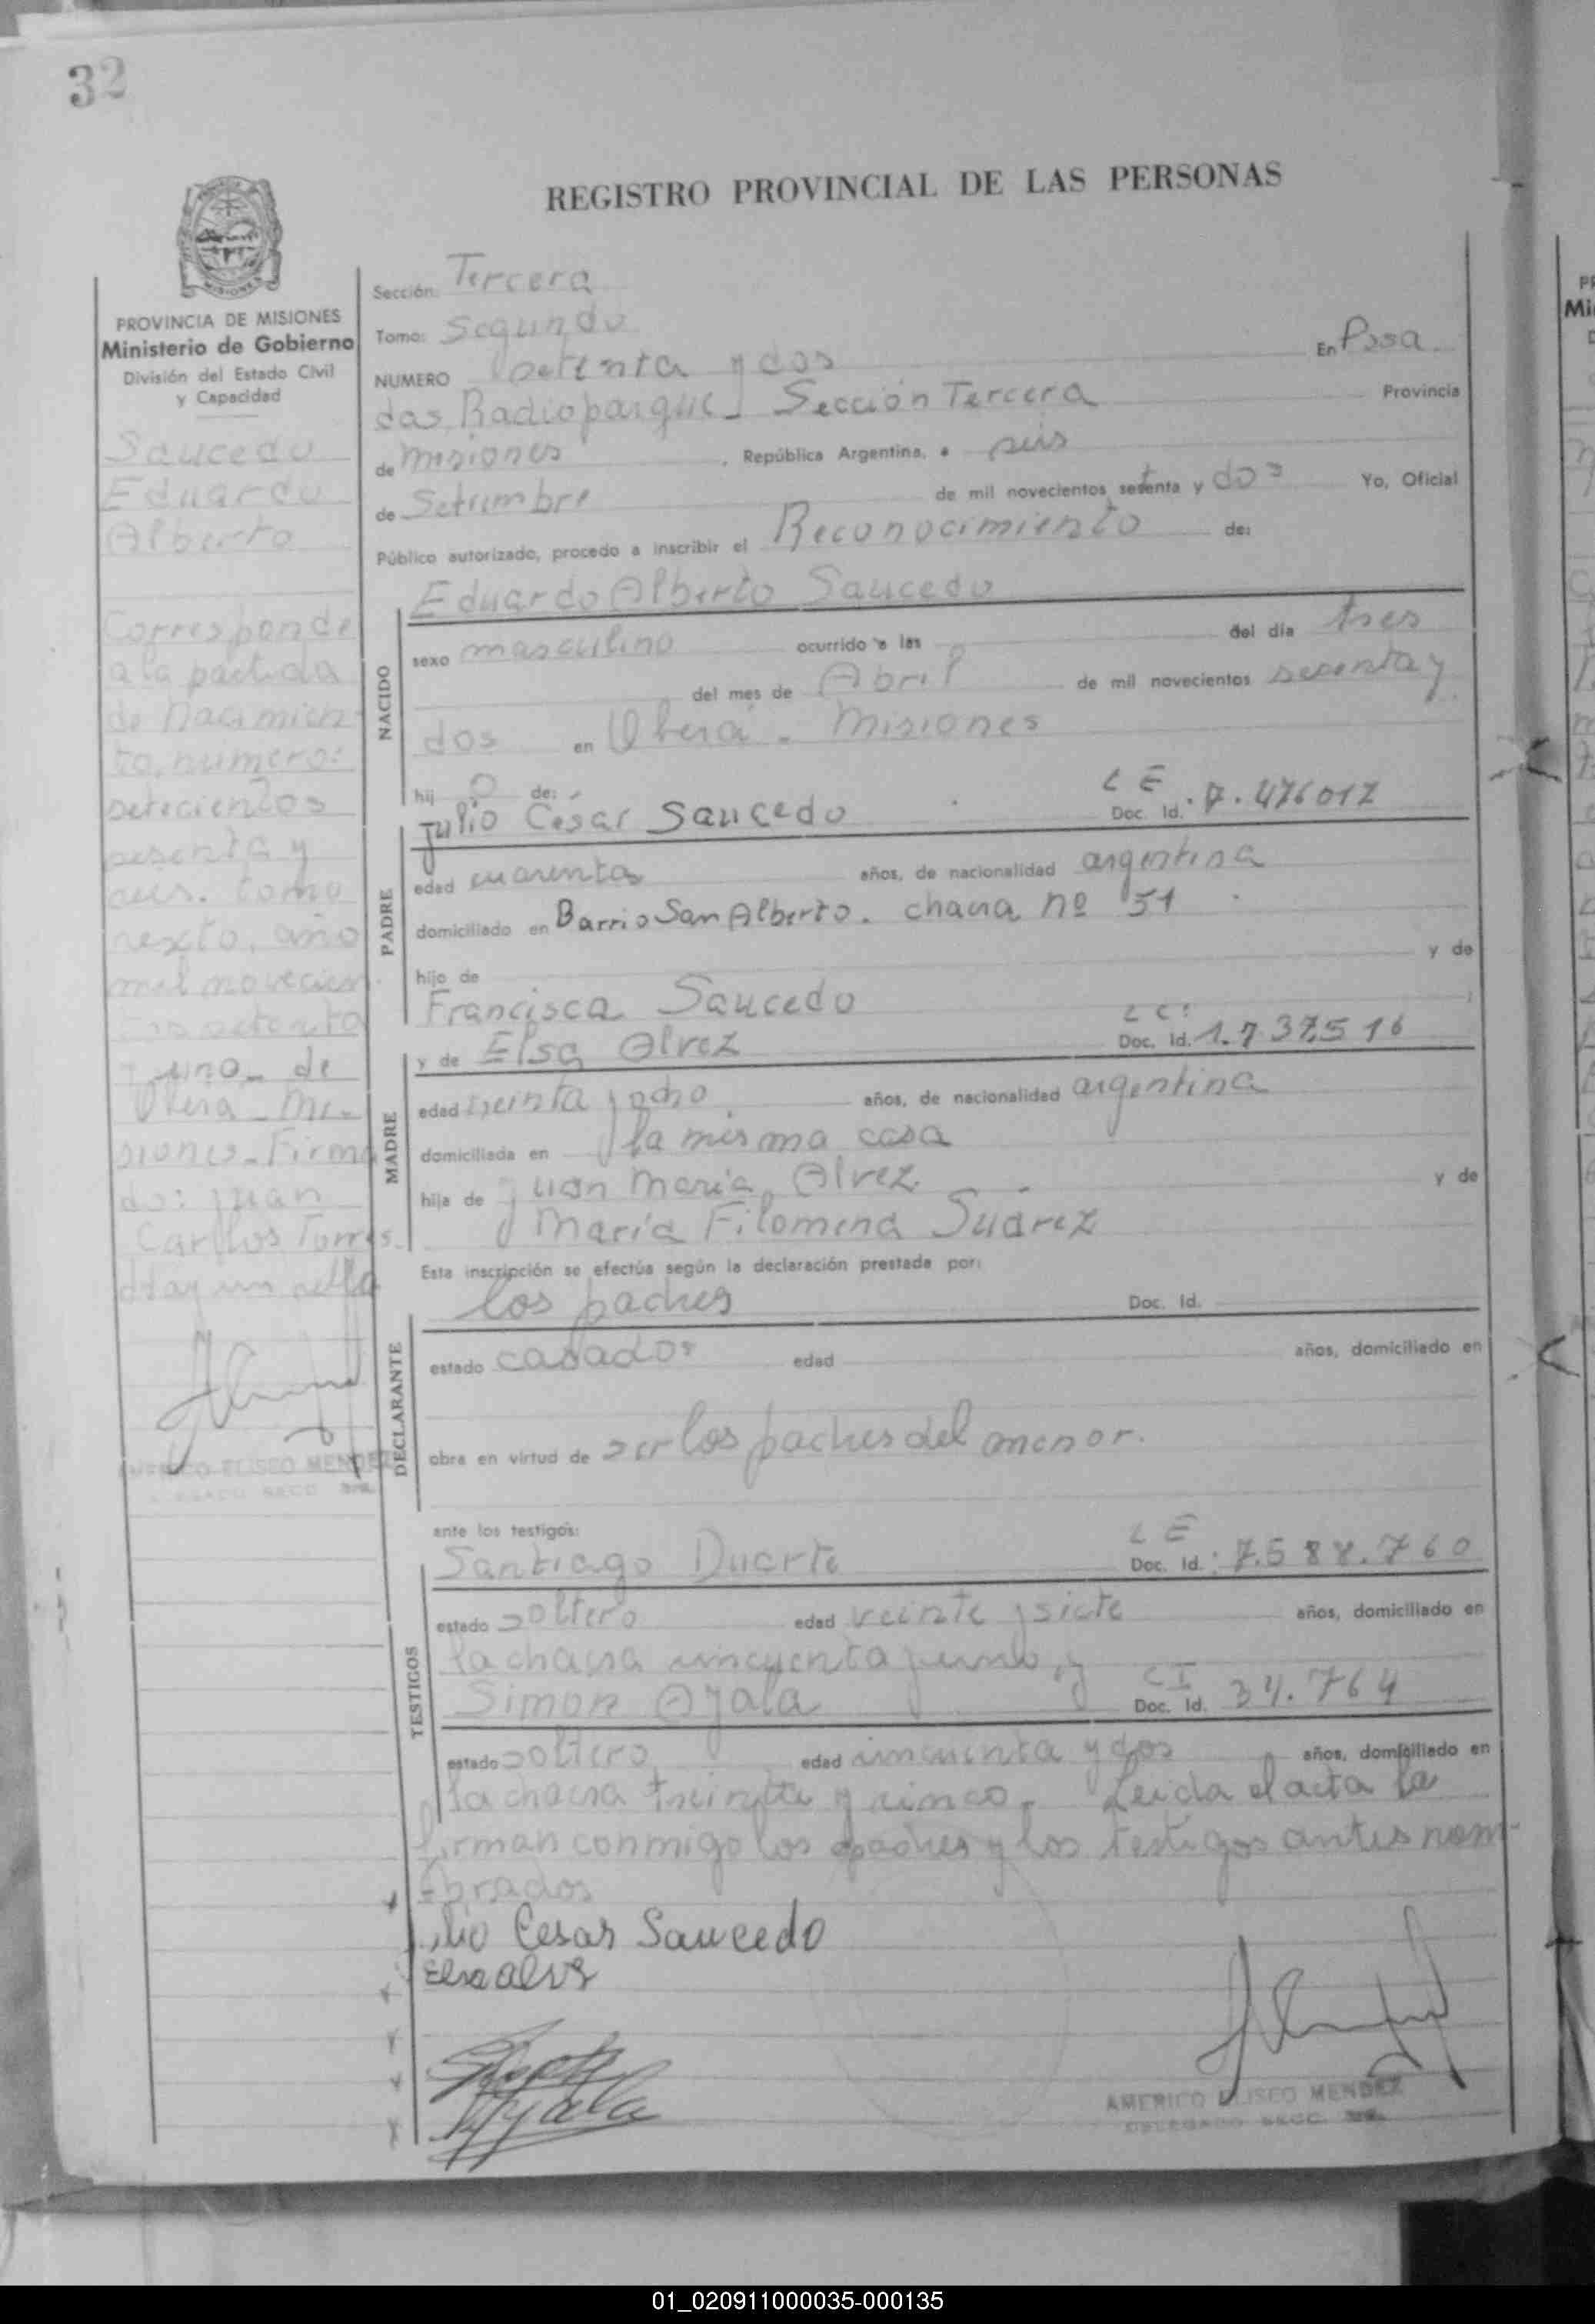 32
REGISTRO PROVINCIAL DE LAS PERSONAS
MISIONES
PROVINCIA DE MISIONES
Ministerio de Gobierno
División del Estado Civil
y Capacidad
Saucedo
Eduardo
Alberto
Corresponde
a la partida
de nacimien-
to, número:
setecientos
sesenta y
seis. tomo
sexto, año
mil novecien.
tos setenta
y uno_ de
Oberá_ Mi_
siones_ Firma
do: Juan
Carlos Torres_
Hay un sello
AMERICO ELISEO MENDEZ
DELEGADO SECC. 3ra.
Sección: Tercera
Tomo: Segundo
NUMERO Setenta y dos En Posa_
das, Radioparque_ Sección Tercera Provincia
de Misiones, República Argentina, a seis
de Setiembre de mil novecientos setenta y dos Yo, Oficial
Público autorizado, procedo a inscribir el Reconocimiento de:
Eduardo Alberto Saucedo
NACIDO
sexo masculino ocurrido a las del día tres
del mes de Abril de mil novecientos sesenta y
dos en Oberá - Misiones
hij o de:
Julio César Saucedo L E Doc. Id. 7.476017
PADRE
edad cuarenta años, de nacionalidad argentina
domiciliado en Barrio San Alberto. chacra nº 51
hijo de y de
Francisca Saucedo
y de Elsa Alvez L C: Doc. Id. 1.737.516
MADRE
edad treinta y ocho años, de nacionalidad argentina
domiciliada en la misma casa
hija de Juan María Alvez y de
María Filomena Suárez
Esta inscripción se efectúa según la declaración prestada por:
los padres Doc. Id.
DECLARANTE
estado casados edad años, domiciliado en
obra en virtud de ser los padres del menor.
ante los testigos:
Santiago Duarte L E Doc. Id.: 7.588.760
TESTIGOS
estado soltero edad veinte y siete años, domiciliado en
la chacra cincuenta y uno, y
Simon Ayala C I Doc. Id. 34.764
estado soltero, edad cincuenta y dos años, domiciliado en
la chacra treinta y cinco. Leída el acta la
firman conmigo los padres y los testigos antes nom-
brados
Julio Cesar Saucedo
Elsa Alvez
Ayala
AMERICO ELISEO MENDEZ
DELEGADO SECC. 3ra.
01_020911000035-000135